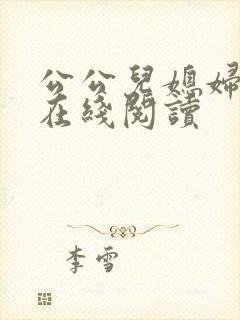 公公兒媳婦
在綫閱讀
李雪